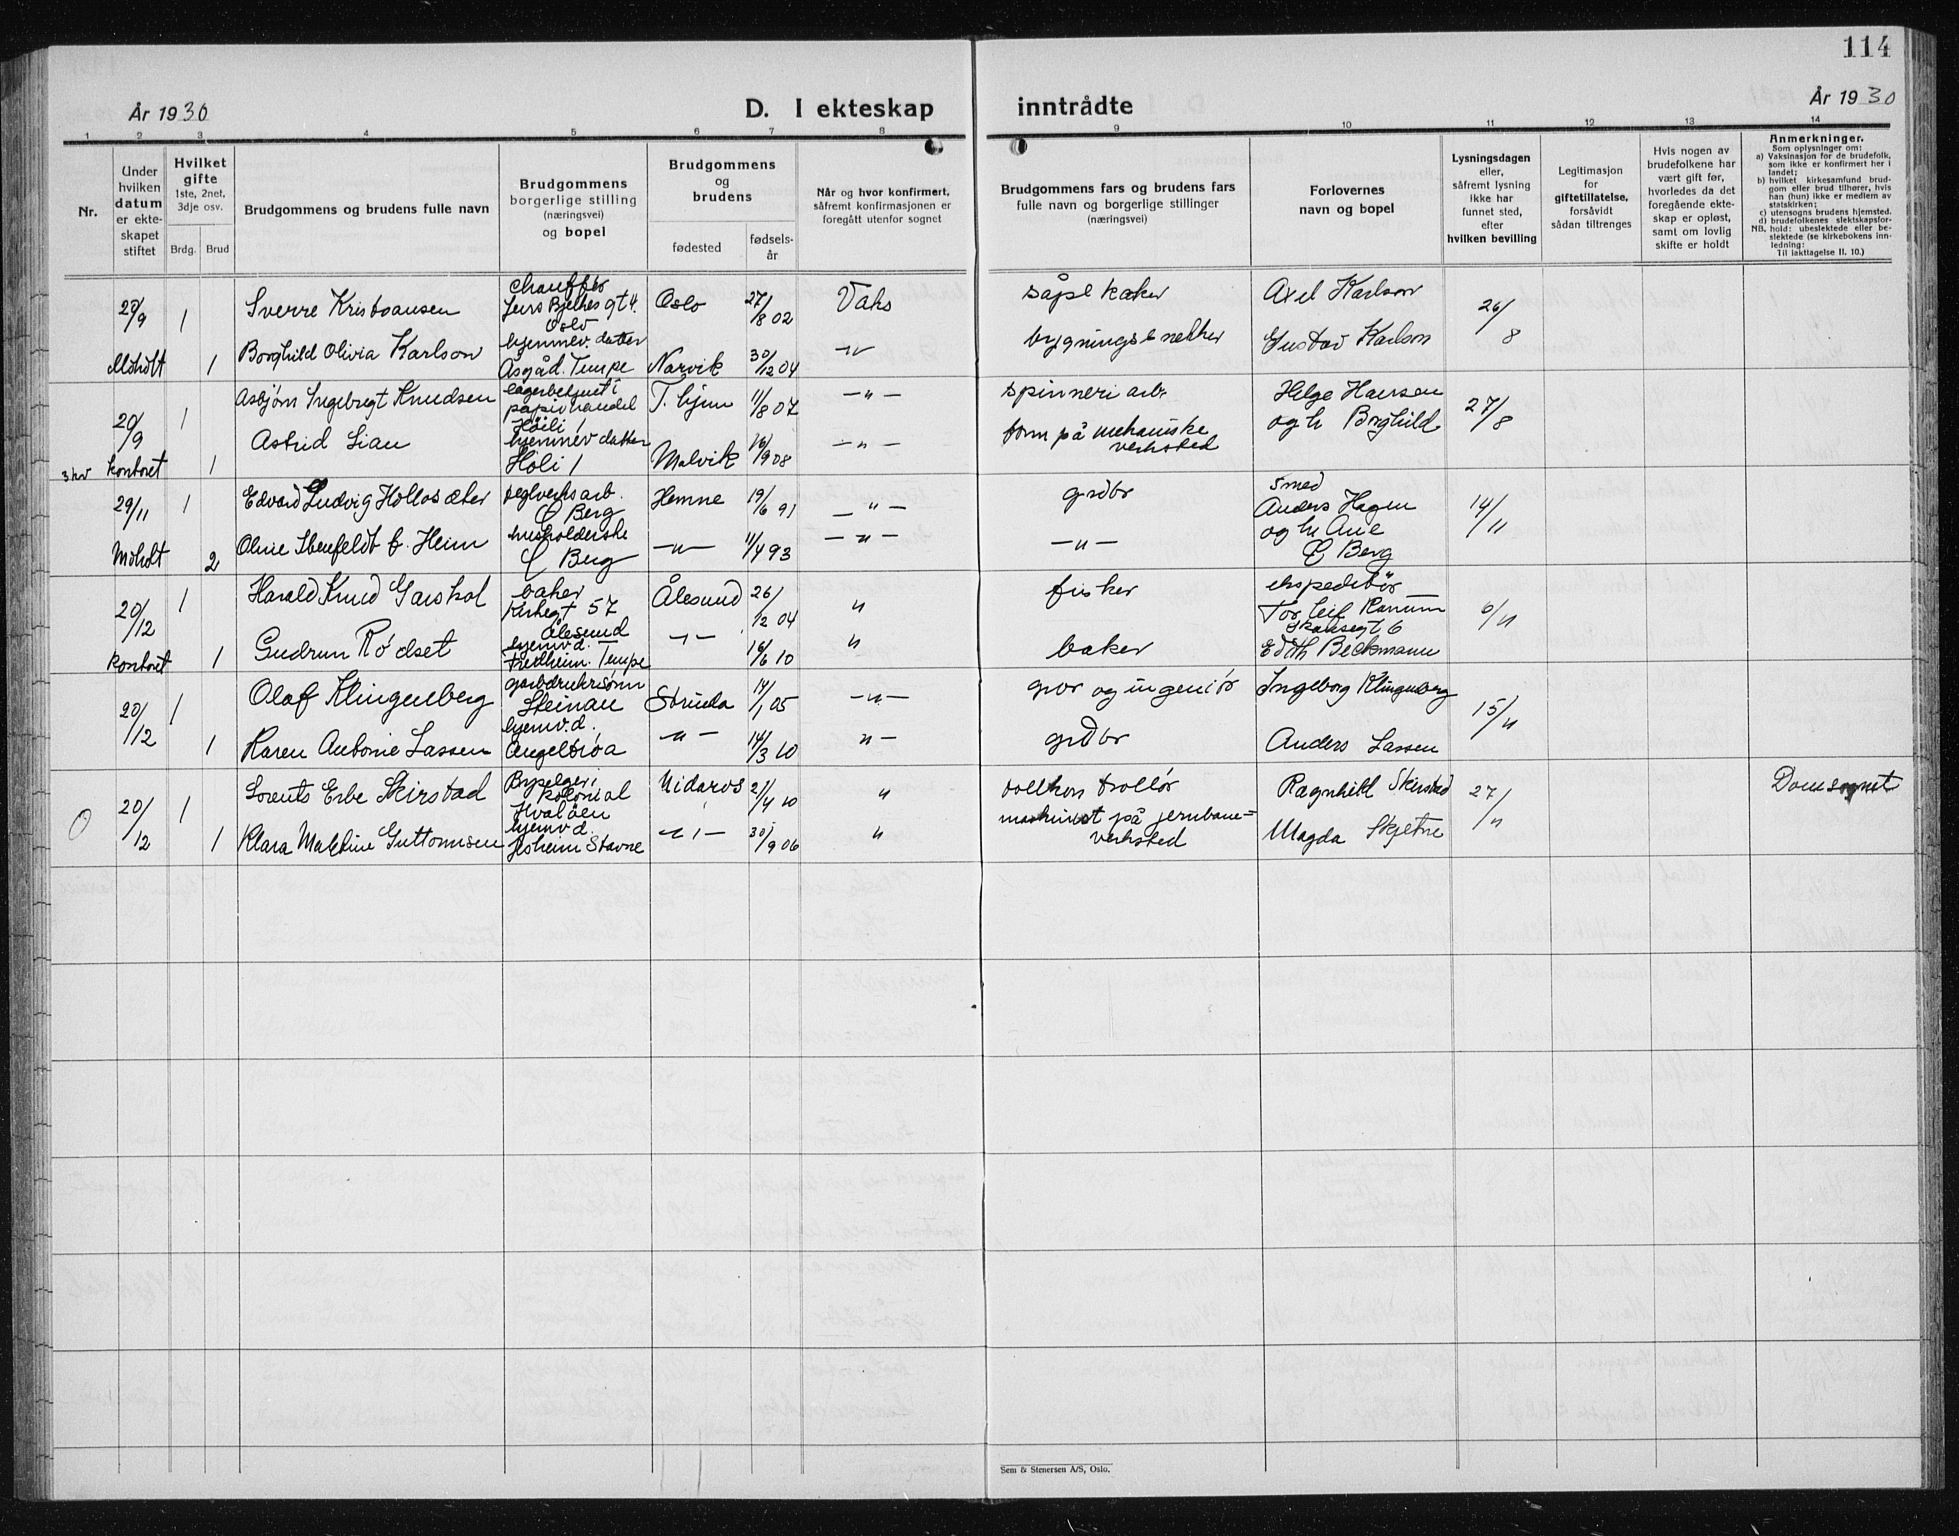 114
År 1930
D. I ekteskap inntrådte
År 1930
1 2 3 4 5 6 7 8 9 10 11 12 13 14
Nr.
Under hvilken datum er ekte-skapet stiftet
Hvilket gifte
1ste, 2net, 3dje osv.
Brdg. Brud
Brudgommens og brudens fulle navn
Brudgommens borgerlige stilling (næringsvei) og bopel
Brudgommens og brudens
fødested
fødsels-år
Når og hvor konfirmert, såfremt konfirmasjonen er foregått utenfor sognet
Brudgommens fars og brudens fars fulle navn og borgerlige stillinger (næringsvei)
Forlovernes navn og bopel
Lysningsdagen eller, såfremt lysning ikke har funnet sted, efter hvilken bevilling
Legitimasjon for giftetillatelse, forsåvidt sådan tiltrenges
Hvis nogen av brudefolkene har vært gift før, hvorledes da det foregående ekte-skap er opløst, samt om lovlig skifte er holdt
Anmerkninger.
Som oplysninger om:
a) Vaksinasjon for de brudefolk, som ikke er konfirmert her i landet;
b) hvilket kirkesamfund brud-gom eller brud tilhører, hvis han (hun) ikke er medlem av statskirken;
c) utensogns brudens hjemsted.
d) brudefolkenes slektskapsfor-hold: ubeslektede eller be-slektede (se kirkebokens inn-ledning:
NB.
Til iakttagelse II. 10.)
1 Sverre Kristiansen
chauffør
Jens Bjelkes gt 4.
Oslo
Oslo 27/8 02
såpekoker
Axel Karlson
26/8
Moholt 1 Borghild Olivia Karlson
hjemmev. datter
Åsgård. Tempe
Narvik 30/12 04 -"-
bygningssnekker
Gustav Karlson
20/9 1 Asbjørn Ingebrigt Knudsen
lagerbetjent i
papirhandel
T.hjem 11/8 07 -"-
spinneri arb.
Helge Hansen
og h Borghild
27/8
3 kv kontoret 1 Astrid Lian
hjemmev datter
Höli 1
Malvik 16/9 08 -"-
form på mekaniske
verksted
29/11 1 Edvard Ludvig Hollosæter
teglverksarb.
Berg
Hemne 19/6 91 -"-
grdbr
smed
Anders Hagen
og h. Ane
Berg
14/11
Moholt 2 Oline Ibenfeldt f. Heim
husholderske
Berg
-"- 11/4 93 -"-
-"-
20/12 1 Harald Knud Garshol
baker
Kirkegt 57
Ålesund
Ålesund 26/12 04 "
fisker
ekspeditør
Tor Leif Ranum
6/11
kontoret 1 Gudrun Rødset
hjemv. d.
Fredheim. Tempe
-"- 16/6 10 "
baker
Edith Beckmann
20/12 1 Olaf Klingenberg
gårdbrukersønn
Steinan
Strinda 14/1 05 -"-
gbr og ingeniør
Ingeborg Klingenberg
15/11
1 Karen Antonie Lassen
hjemv. d.
Angeltrøa
-"- 14/3 10 "-
grdbr
Anders Lassen
0 20/12 1 Lorents Erbe Skirstad
kolonial
Nidaros 21/4 10 "
tollkontrollør
Ragnhild Skirstad
27/11
Domsognet
1 Klara Mathine Guttormsen
hjemv d.
Jesheim Stavne
-"- 30/9 06 "
maskinist på jernbane=
verksted
Magda Skjetne
Sem & Stenersen A/S, Oslo.